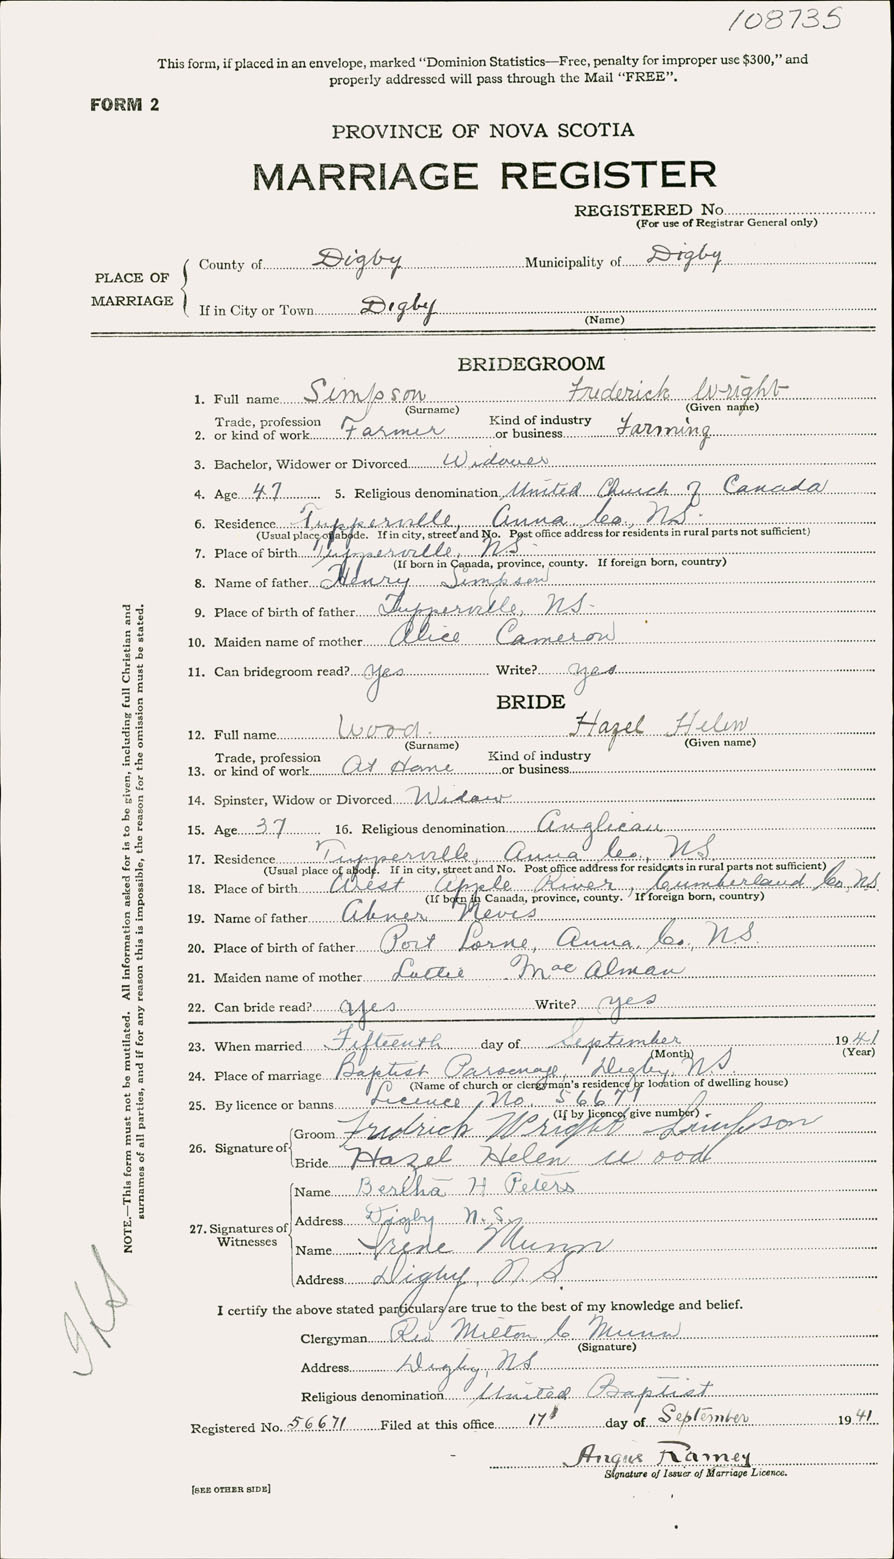 108735
This form, if placed in an envelope, marked "Dominion Statistics—Free, penalty for improper use $300," and
properly addressed will pass through the Mail "FREE".
FORM 2
PROVINCE OF NOVA SCOTIA
MARRIAGE REGISTER
REGISTERED No.
(For use of Registrar General only)
PLACE OF MARRIAGE
County of Digby Municipality of Digby
If in City or Town Digby
(Name)
BRIDEGROOM
1. Full name Simpson Frederick Wright
(Surname) (Given name)
2. Trade, profession or kind of work Farmer Kind of industry or business Farming
3. Bachelor, Widower or Divorced Widower
4. Age 47 5. Religious denomination United Church of Canada
6. Residence Tupperville, Anna Co., N.S.
(Usual place of abode. If in city, street and No. Post office address for residents in rural parts not sufficient)
7. Place of birth Tupperville, N.S.
(If born in Canada, province, county. If foreign born, country)
8. Name of father Henry Simpson
9. Place of birth of father Tupperville, N.S.
10. Maiden name of mother Alice Cameron
11. Can bridegroom read? yes Write? yes
BRIDE
12. Full name Wood Hazel Helen
(Surname) (Given name)
13. Trade, profession or kind of work At Home Kind of industry or business
14. Spinster, Widow or Divorced Widow
15. Age 37 16. Religious denomination Anglican
17. Residence Tupperville, Anna Co., N.S.
(Usual place of abode. If in city, street and No. Post office address for residents in rural parts not sufficient)
18. Place of birth West Apple River, Cumberland Co. N.S.
(If born in Canada, province, county. If foreign born, country)
19. Name of father Abner Nevis
20. Place of birth of father Port Lorne, Anna. Co., N.S.
21. Maiden name of mother Lottie Mac Alman
22. Can bride read? yes Write? yes
23. When married Fifteenth day of September 1941
(Month) (Year)
24. Place of marriage Baptist Parsonage, Digby, N.S.
(Name of church or clergyman's residence or location of dwelling house)
25. By licence or banns Licence No. 56671
(If by licence, give number)
26. Signature of Groom Fredrick Wright Simpson
Bride Hazel Helen Wood
27. Signatures of Witnesses
Name Bertha H Peters
Address Digby N.S.
Name Irene Munn
Address Digby, N.S.
I certify the above stated particulars are true to the best of my knowledge and belief.
Clergyman Rev Milton C Munn
(Signature)
Address Digby, N.S.
Religious denomination United Baptist
Registered No. 56671 Filed at this office 17 day of September 1941
Angus Ramey
Signature of Issuer of Marriage Licence.
[SEE OTHER SIDE]
NOTE.—This form must not be mutilated. All information asked for is to be given, including full Christian and
surnames of all parties, and if for any reason this is impossible, the reason for the omission must be stated.